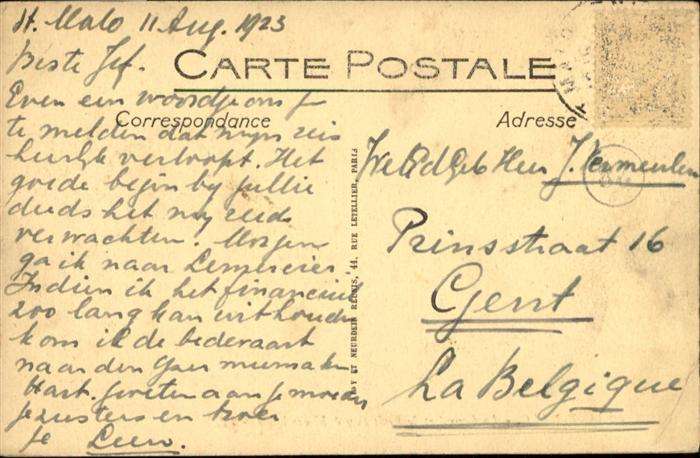 St. Malo 11 Aug. 1923
Beste Jef.
CARTE POSTALE
Even een woordje om je
Correspondance
Adresse
te melden dat mijn reis
heerlijk verloopt. Het
goede begin bij jullie
deeds het mij reeds
verwachten. Morgen
ga ik naar
Indien ik het financieel
zoo lang kan uithouden
kom ik de bedevaart
naar den Yzer meemaken
Hart. groeten aan je moeder
je zusters en broer
je Leen.
LEVY ET NEURDEIN REUNIS, 44, RUE LETELLIER, PARIS
WelEdGeb Heer J. Vermeulen
Prinsstraat 16
Gent
La Belgique